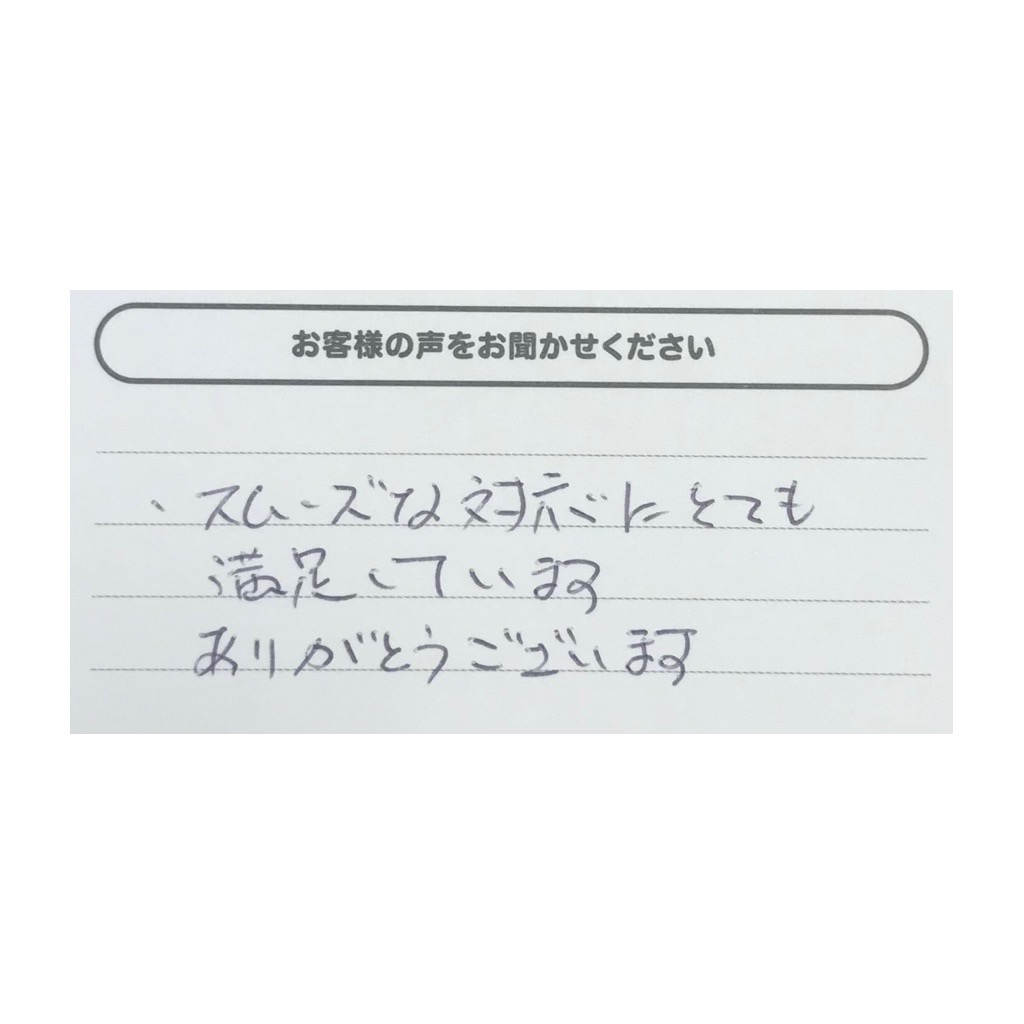 お客様の声をお聞かせください
、スムーズな対応にとても
満足しています
ありがとうございます